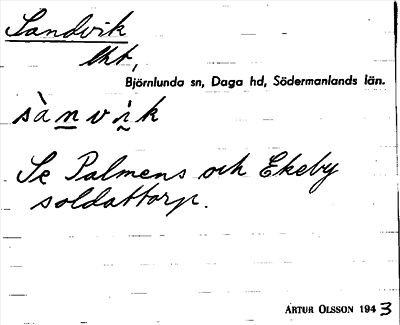 Sandvik
lht,
Björnlunda sn, Daga hd, Södermanlands län.
sànvi̬k
Se Palmens och Ekeby
soldattorp.
ARTUR OLSSON 1943